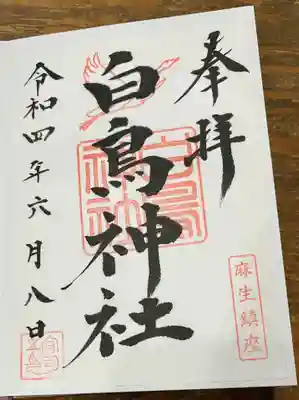 奉拝
麻生鎮座
白鳥神社
白鳥神社
令和四年六月八日